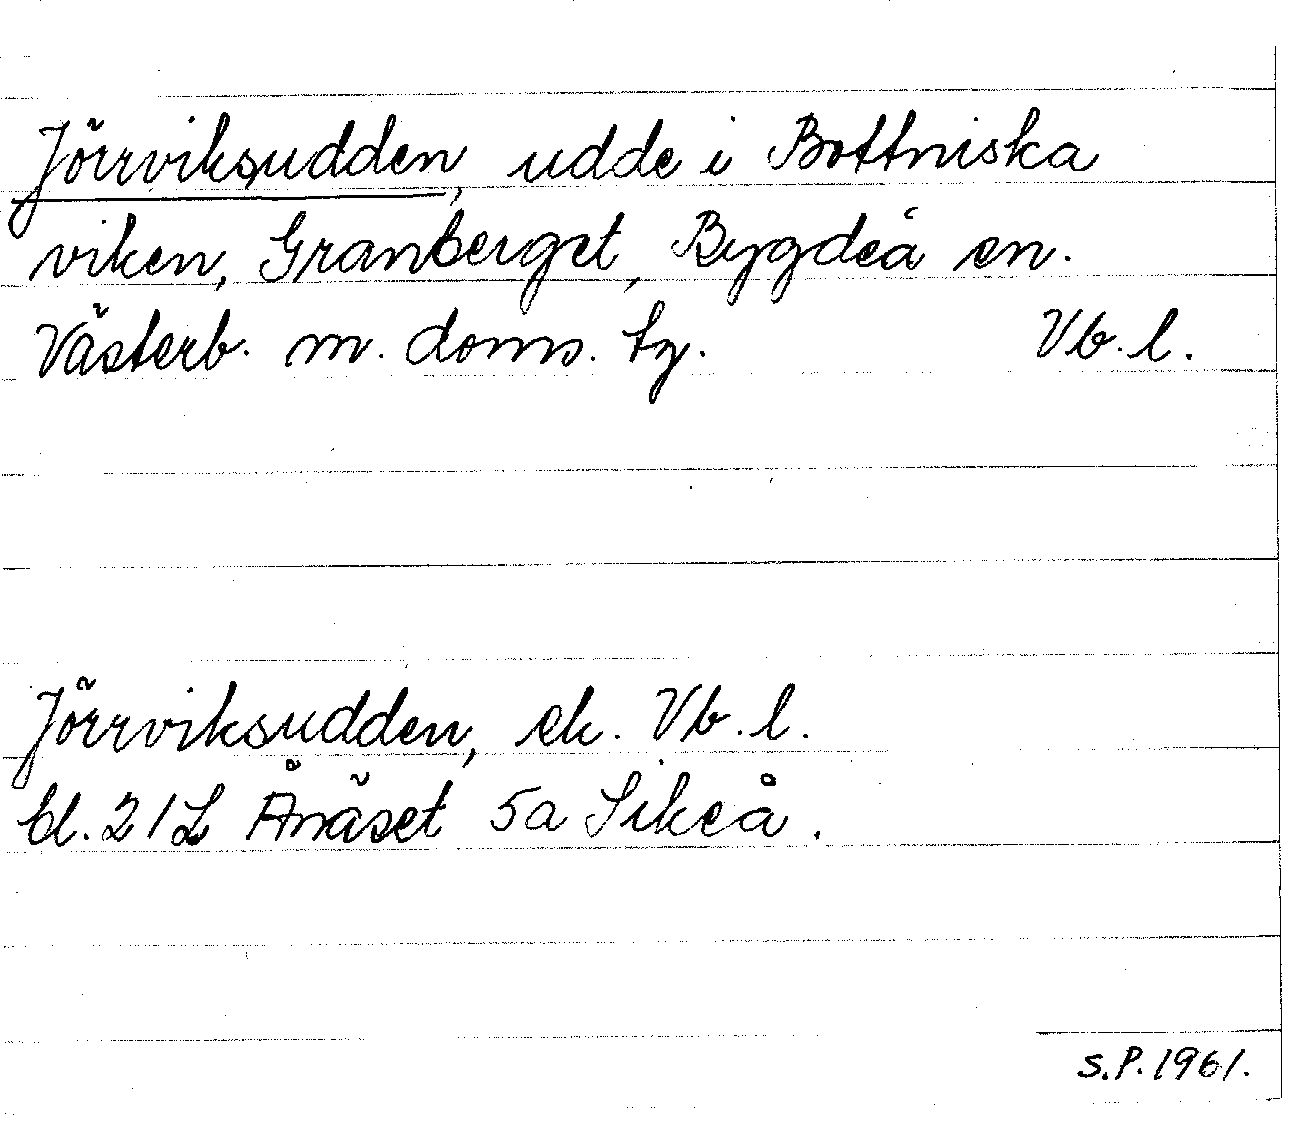 Jörrviksudden, udde i Bottniska
viken, Granberget, Bygdeå sn.
Västerb. m. doms. tg. Vb. l.
Jörrviksudden, ek. Vb. l.
bl. 21L Ånäset 5a Sikeå.
S.P. 1961.